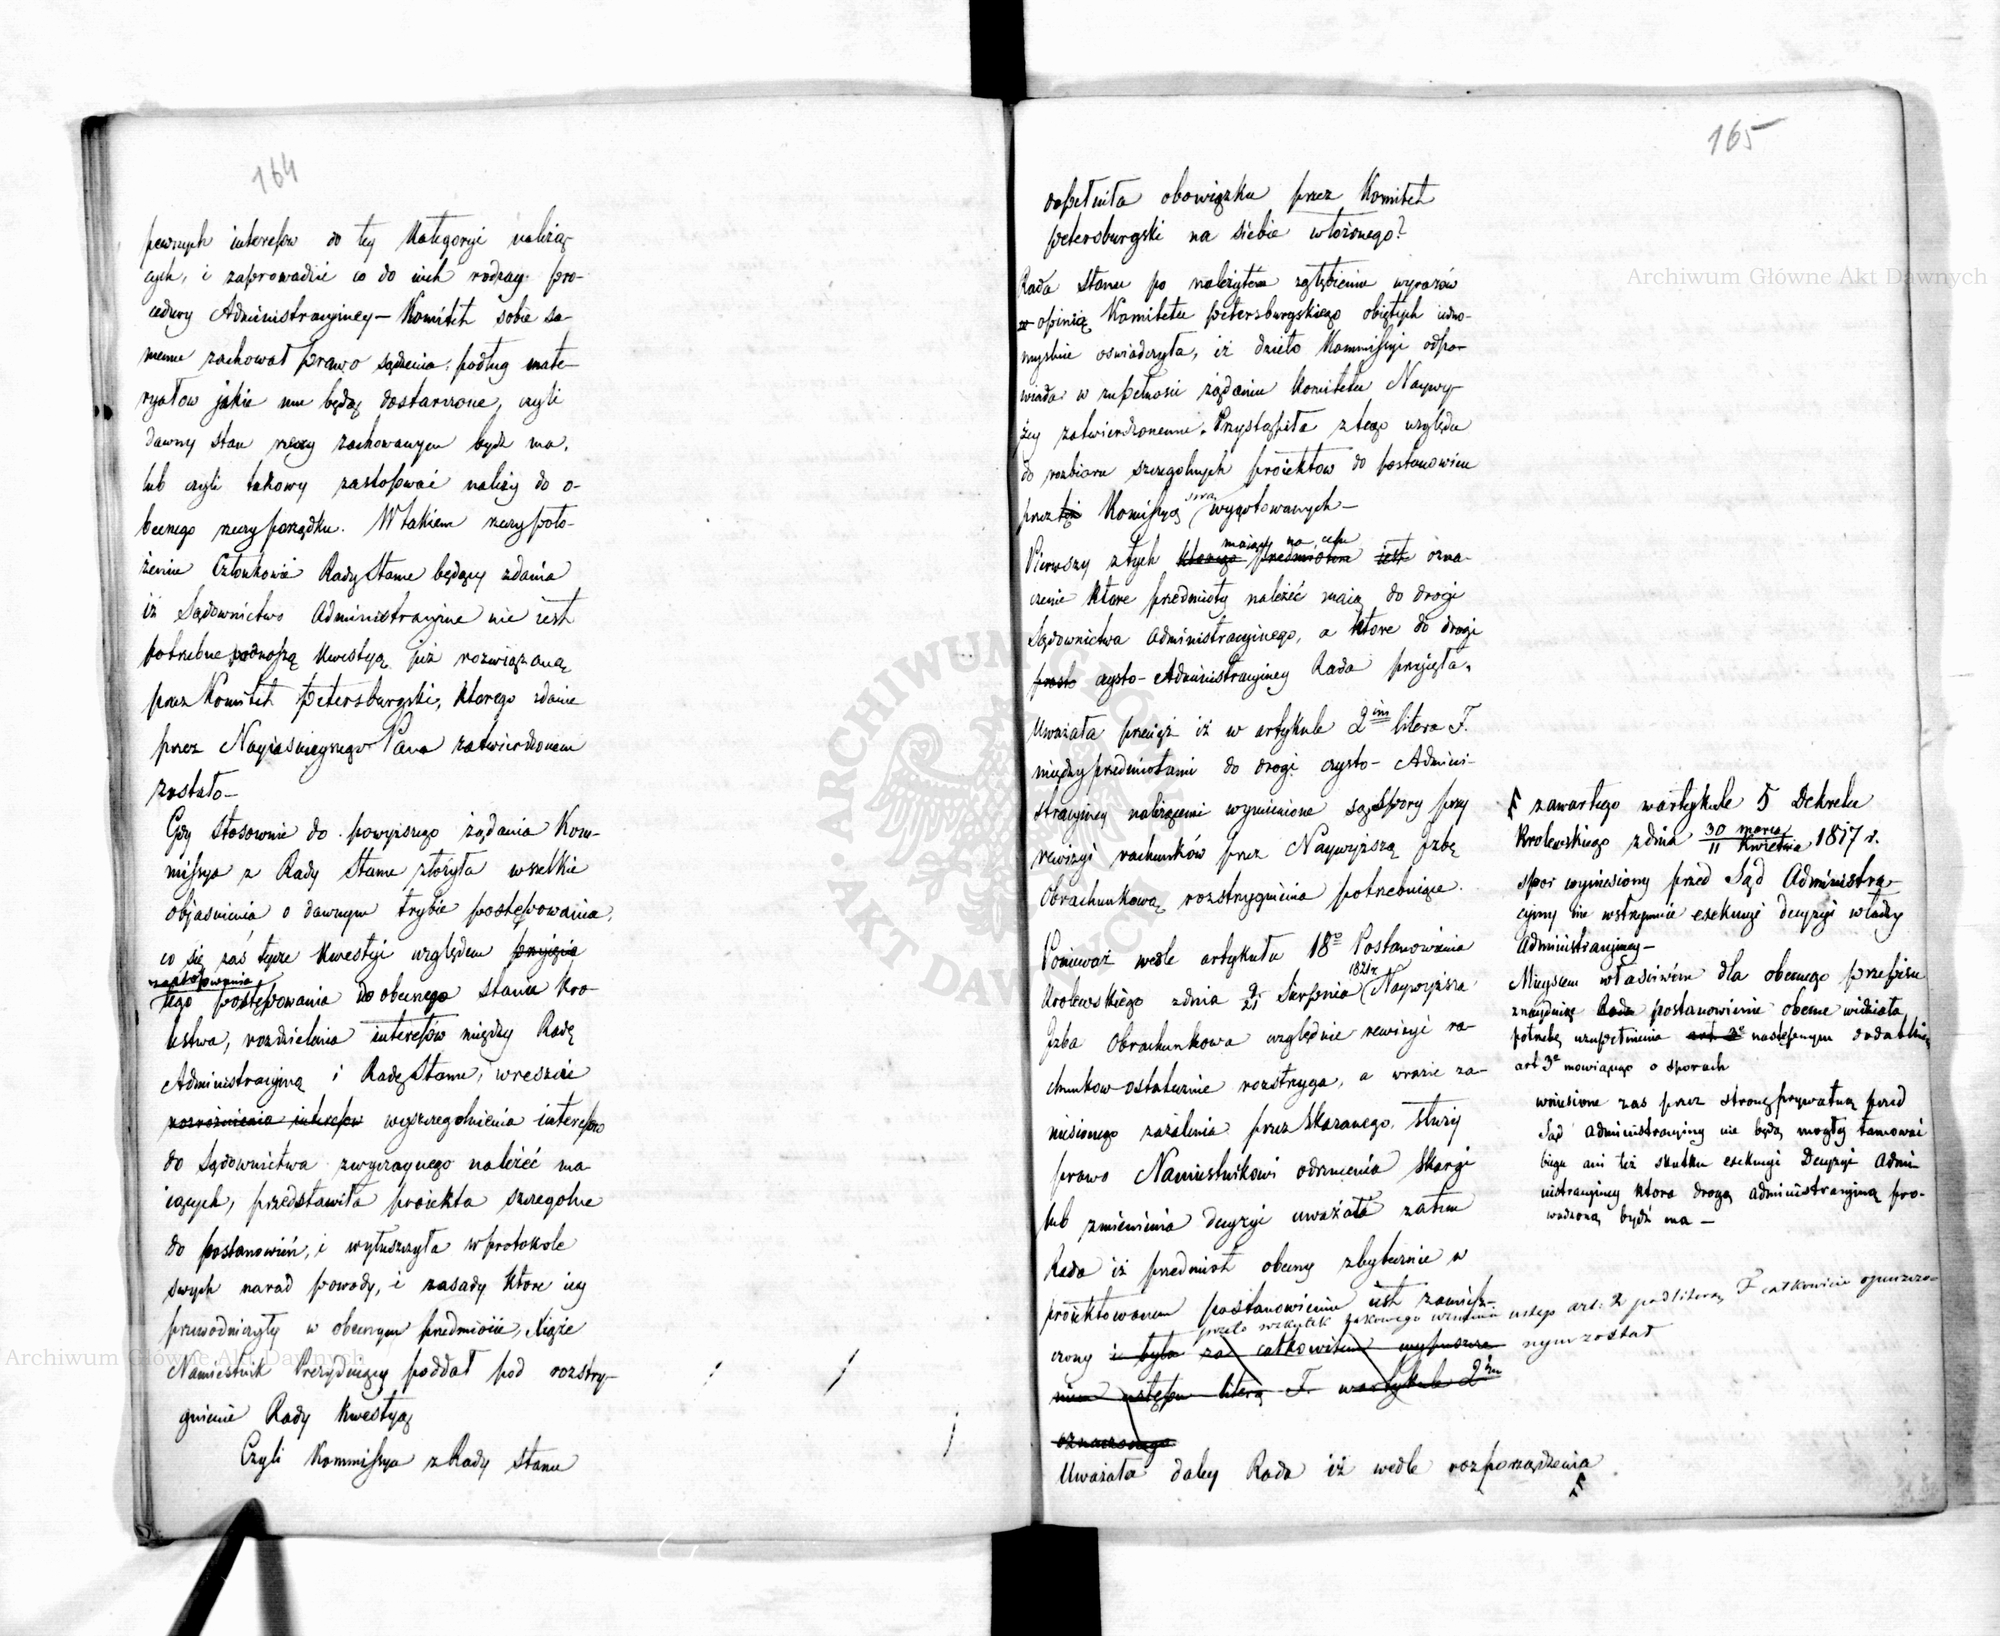 164
pewnych interesów do tey Kategoryi należą-
cych, i zaprowadzić co do nich rodzay pro-
cedury Administracyiney – Komitet sobie sa-
memu zachował prawo sądzenia, podług mate-
ryałow jakie mu będą dostarczone, czyli
dawny stan rzeczy zachowanym bydź ma,
lub czyli takowy zastosować należy do o-
becnego rzeczy porządku. W takiem rzeczy poło-
żeniu Członkowie Rady Stanu będący zdania
iż Sądownictwo Administracyine nie iest
potrzebne podnoszą kwestyą już rozwiązaną
przez Komitet Petersburgski, ktorego zdanie
przez Nayiaśnieyszego Pana zatwierdzonem
zostało –
Gdy stosownie do powyższego żądania Kom-
missya z Rady Stanu złożyła wszelkie
objaśnienia o dawnym trybie postępowania,
co się zaś tycze kwestyi względem przyięcia
zastosowania
tego postępowania do obecnego stanu Kro-
lestwa, rozdzielenia interesów między Radę
Administracyiną i Radę Stanu, wreszcie
rozrożnienia interesow wyszczegolnienia interesow
do Sądownictwa zwyczaynego należeć ma-
iących, przedstawiła proiekta szczegolne
do postanowień, i wyłuszczyła w protokole
swych narad powody, i zasady ktore iey
przewodniczyły w obecnym przedmiocie, Xiąże
Namiestnik Prezyduiący poddał pod rozstrzy-
gnienie Rady kwestyą
Czyli Kommissya z Rady Stanu
165
dopełniła obowiązku przez Komitet
Petersburgski na siebie włożonego?
Rada Stanu po należytem zgłębieniu wyrazów
w opinią Komitetu Petersburgskiego obiętych iedno-
myślnie oświadczyła, iż dzieło Kommissyi odpo-
wiada w zupełności żądaniu Komitetu Naywy-
żey zatwierdzonemu. Przystąpiła z tego względu
do rozbioru szczegolnych proiektow do postanowien
przez tęż Komissyą wygotowanych –
maiący na celu
Pierwszy z tych ktorego przedmiotem iest ozna-
czenie ktore przedmioty należeć maią do drogi
Sądownictwa Administracyinego, a ktore do drogi
prosto czysto-Administracyiney Rada przyięła.
Uważała przecięż iż w artykule 2im litera F.
między przedmiotami do drogi czysto-Adminis-
stracyiney należącemi wymienione są Spory przy
rewizyi rachunków przez Naywyższą Izbę
Obrachunkową rozstrzygnienia potrzebuiące.
Ponieważ wedle artykułu 18o Postanowienia
Krolewskiego z dnia 9/21 Sierpnia 1821 r. Naywyższa
Izba Obrachunkowa względnie rewizyi ra-
chunkow ostatecznie rozstrzyga, a w razie za-
niesionego zażalenia przez Skazanego, służy
prawo Namiestnikowi odrzucenia Skargi
lub zmienienia decyzyi uważała zatem
Rada iż przedmiot obecny zbytecznie w
proiektowanem postanowieniu iest zamiesz-
czony i była za całkowitem wypuszcze-
niem ustępu literą F. w artykule 2im
oznaczonego
przeto wskutek takowego wniosku ustęp art: 2 pod literą F całkowicie opuszczo-
nym został
Uważała daley Rada iż wedle rozporządzenia
zawartego w artykule 5 Dekretu
Krolewskiego z dnia 30 marca/11 Kwietnia 1817 r.
spór wyniesiony przed Sąd Administra-
cyiny nie wstrzymuie exekucyi decyzyi władzy
Administracyiney –
Mieyscem właściwém dla obecnego przepisu
znayduiąc Rada postanowienie obecne widziała
potrzebę uzupełnienia art. 3o następnym dodatkiem
art 3o mówiącego o sporach
wniesione zas przez stronę prywatną przed
Sąd Administracyiny nie będą mogły tamować
biegu ani też skutku exekucyi Decyzyi Admi-
nistracyiney ktora drogą administracyiną pro-
wadzoną bydź ma –
Archiwum Główne Akt Dawnych
Archiwum Główne Akt Dawnych
ARCHIWUM GŁÓWNE AKT DAWNYCH